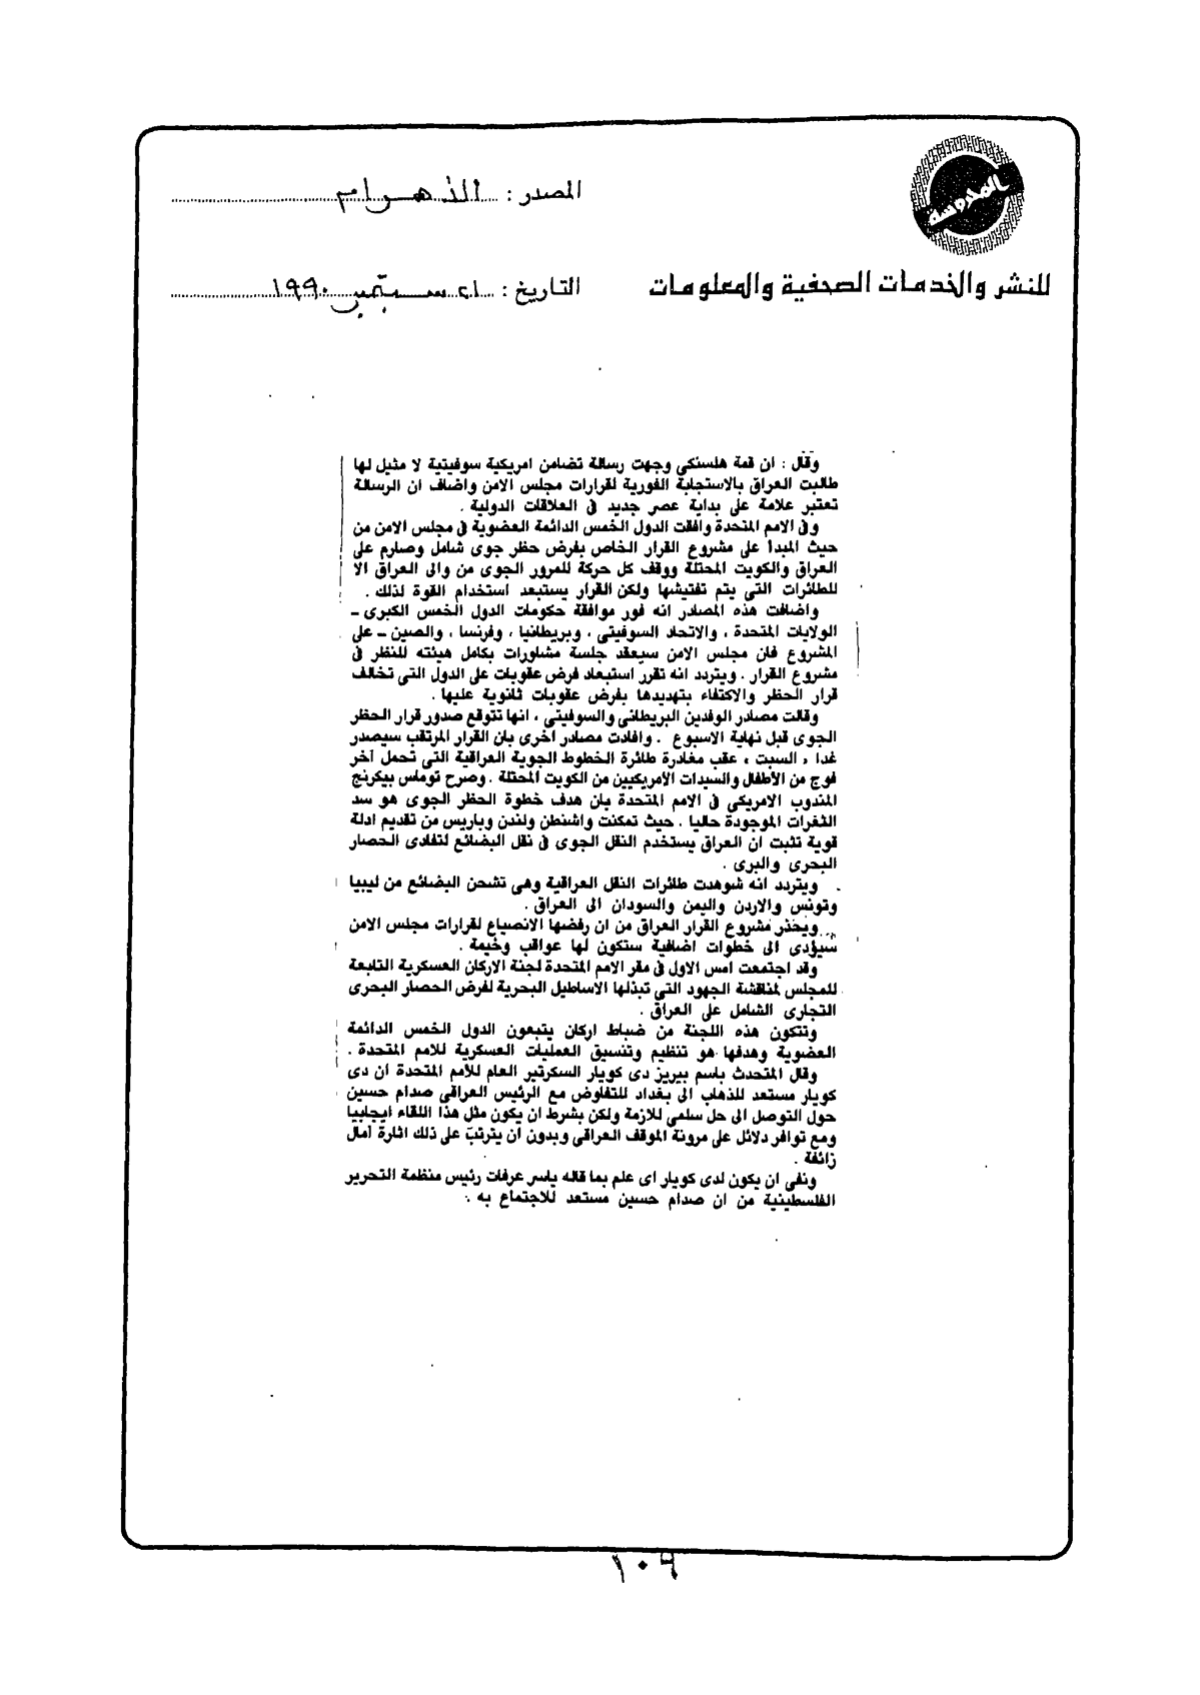 المحروسة
المصدر : الأهرام
للنشر والخدمات الصحفية والمعلومات
التاريخ : ٢١ سبتمبر ١٩٩٠
وقال : ان قمة هلسنكى وجهت رسالة تضامن امريكية سوفيتية لا مثيل لها
طالبت العراق بالاستجابة الفورية لقرارات مجلس الامن واضاف ان الرسالة
تعتبر علامة على بداية عصر جديد فى العلاقات الدولية .
وفى الامم المتحدة وافقت الدول الخمس الدائمة العضوية فى مجلس الامن من
حيث المبدأ على مشروع القرار الخاص بفرض حظر جوى شامل وصارم على
العراق والكويت المحتلة ووقف كل حركة للمرور الجوى من والى العراق الا
للطائرات التى يتم تفتيشها ولكن القرار يستبعد استخدام القوة لذلك .
واضافت هذه المصادر انه فور موافقة حكومات الدول الخمس الكبرى ــ
الولايات المتحدة ، والاتحاد السوفيتى ، وبريطانيا ، وفرنسا ، والصين ــ على
المشروع فان مجلس الامن سيعقد جلسة مشاورات بكامل هيئته للنظر فى
مشروع القرار . ويتردد انه تقرر استبعاد فرض عقوبات على الدول التى تخالف
قرار الحظر والاكتفاء بتهديدها بفرض عقوبات ثانوية عليها .
وقالت مصادر الوفدين البريطانى والسوفيتى ، انها تتوقع صدور قرار الحظر
الجوى قبل نهاية الاسبوع . وافادت مصادر اخرى بان القرار المرتقب سيصدر
غدا ، السبت ، عقب مغادرة طائرة الخطوط الجوية العراقية التى تحمل آخر
فوج من الأطفال والسيدات الأمريكيين من الكويت المحتلة . وصرح توماس بيكرنج
المندوب الامريكى فى الامم المتحدة بان هدف خطوة الحظر الجوى هو سد
الثغرات الموجودة حاليا . حيث تمكنت واشنطن ولندن وباريس من تقديم ادلة
قوية تثبت ان العراق يستخدم النقل الجوى فى نقل البضائع لتفادى الحصار
البحرى والبرى .
ويتردد انه شوهدت طائرات النقل العراقية وهى تشحن البضائع من ليبيا
وتونس والاردن واليمن والسودان الى العراق .
ويحذر مشروع القرار العراق من ان رفضها الانصياع لقرارات مجلس الامن
سيؤدى الى خطوات اضافية ستكون لها عواقب وخيمة .
وقد اجتمعت امس الاول فى مقر الامم المتحدة لجنة الاركان العسكرية التابعة
للمجلس لمناقشة الجهود التى تبذلها الاساطيل البحرية لفرض الحصار البحرى
التجارى الشامل على العراق .
وتتكون هذه اللجنة من ضباط اركان يتبعون الدول الخمس الدائمة
العضوية وهدفها هو تنظيم وتنسيق العمليات العسكرية للامم المتحدة .
وقال المتحدث باسم بيريز دى كويار السكرتير العام للأمم المتحدة ان دى
كويار مستعد للذهاب الى بغداد للتفاوض مع الرئيس العراقى صدام حسين
حول التوصل الى حل سلمى للازمة ولكن بشرط ان يكون مثل هذا اللقاء ايجابيا
ومع توافر دلائل على مرونة الموقف العراقى وبدون ان يترتب على ذلك اثارة آمال
زائفة .
ونفى ان يكون لدى كويار اى علم بما قاله ياسر عرفات رئيس منظمة التحرير
الفلسطينية من ان صدام حسين مستعد للاجتماع به .
١٠٩